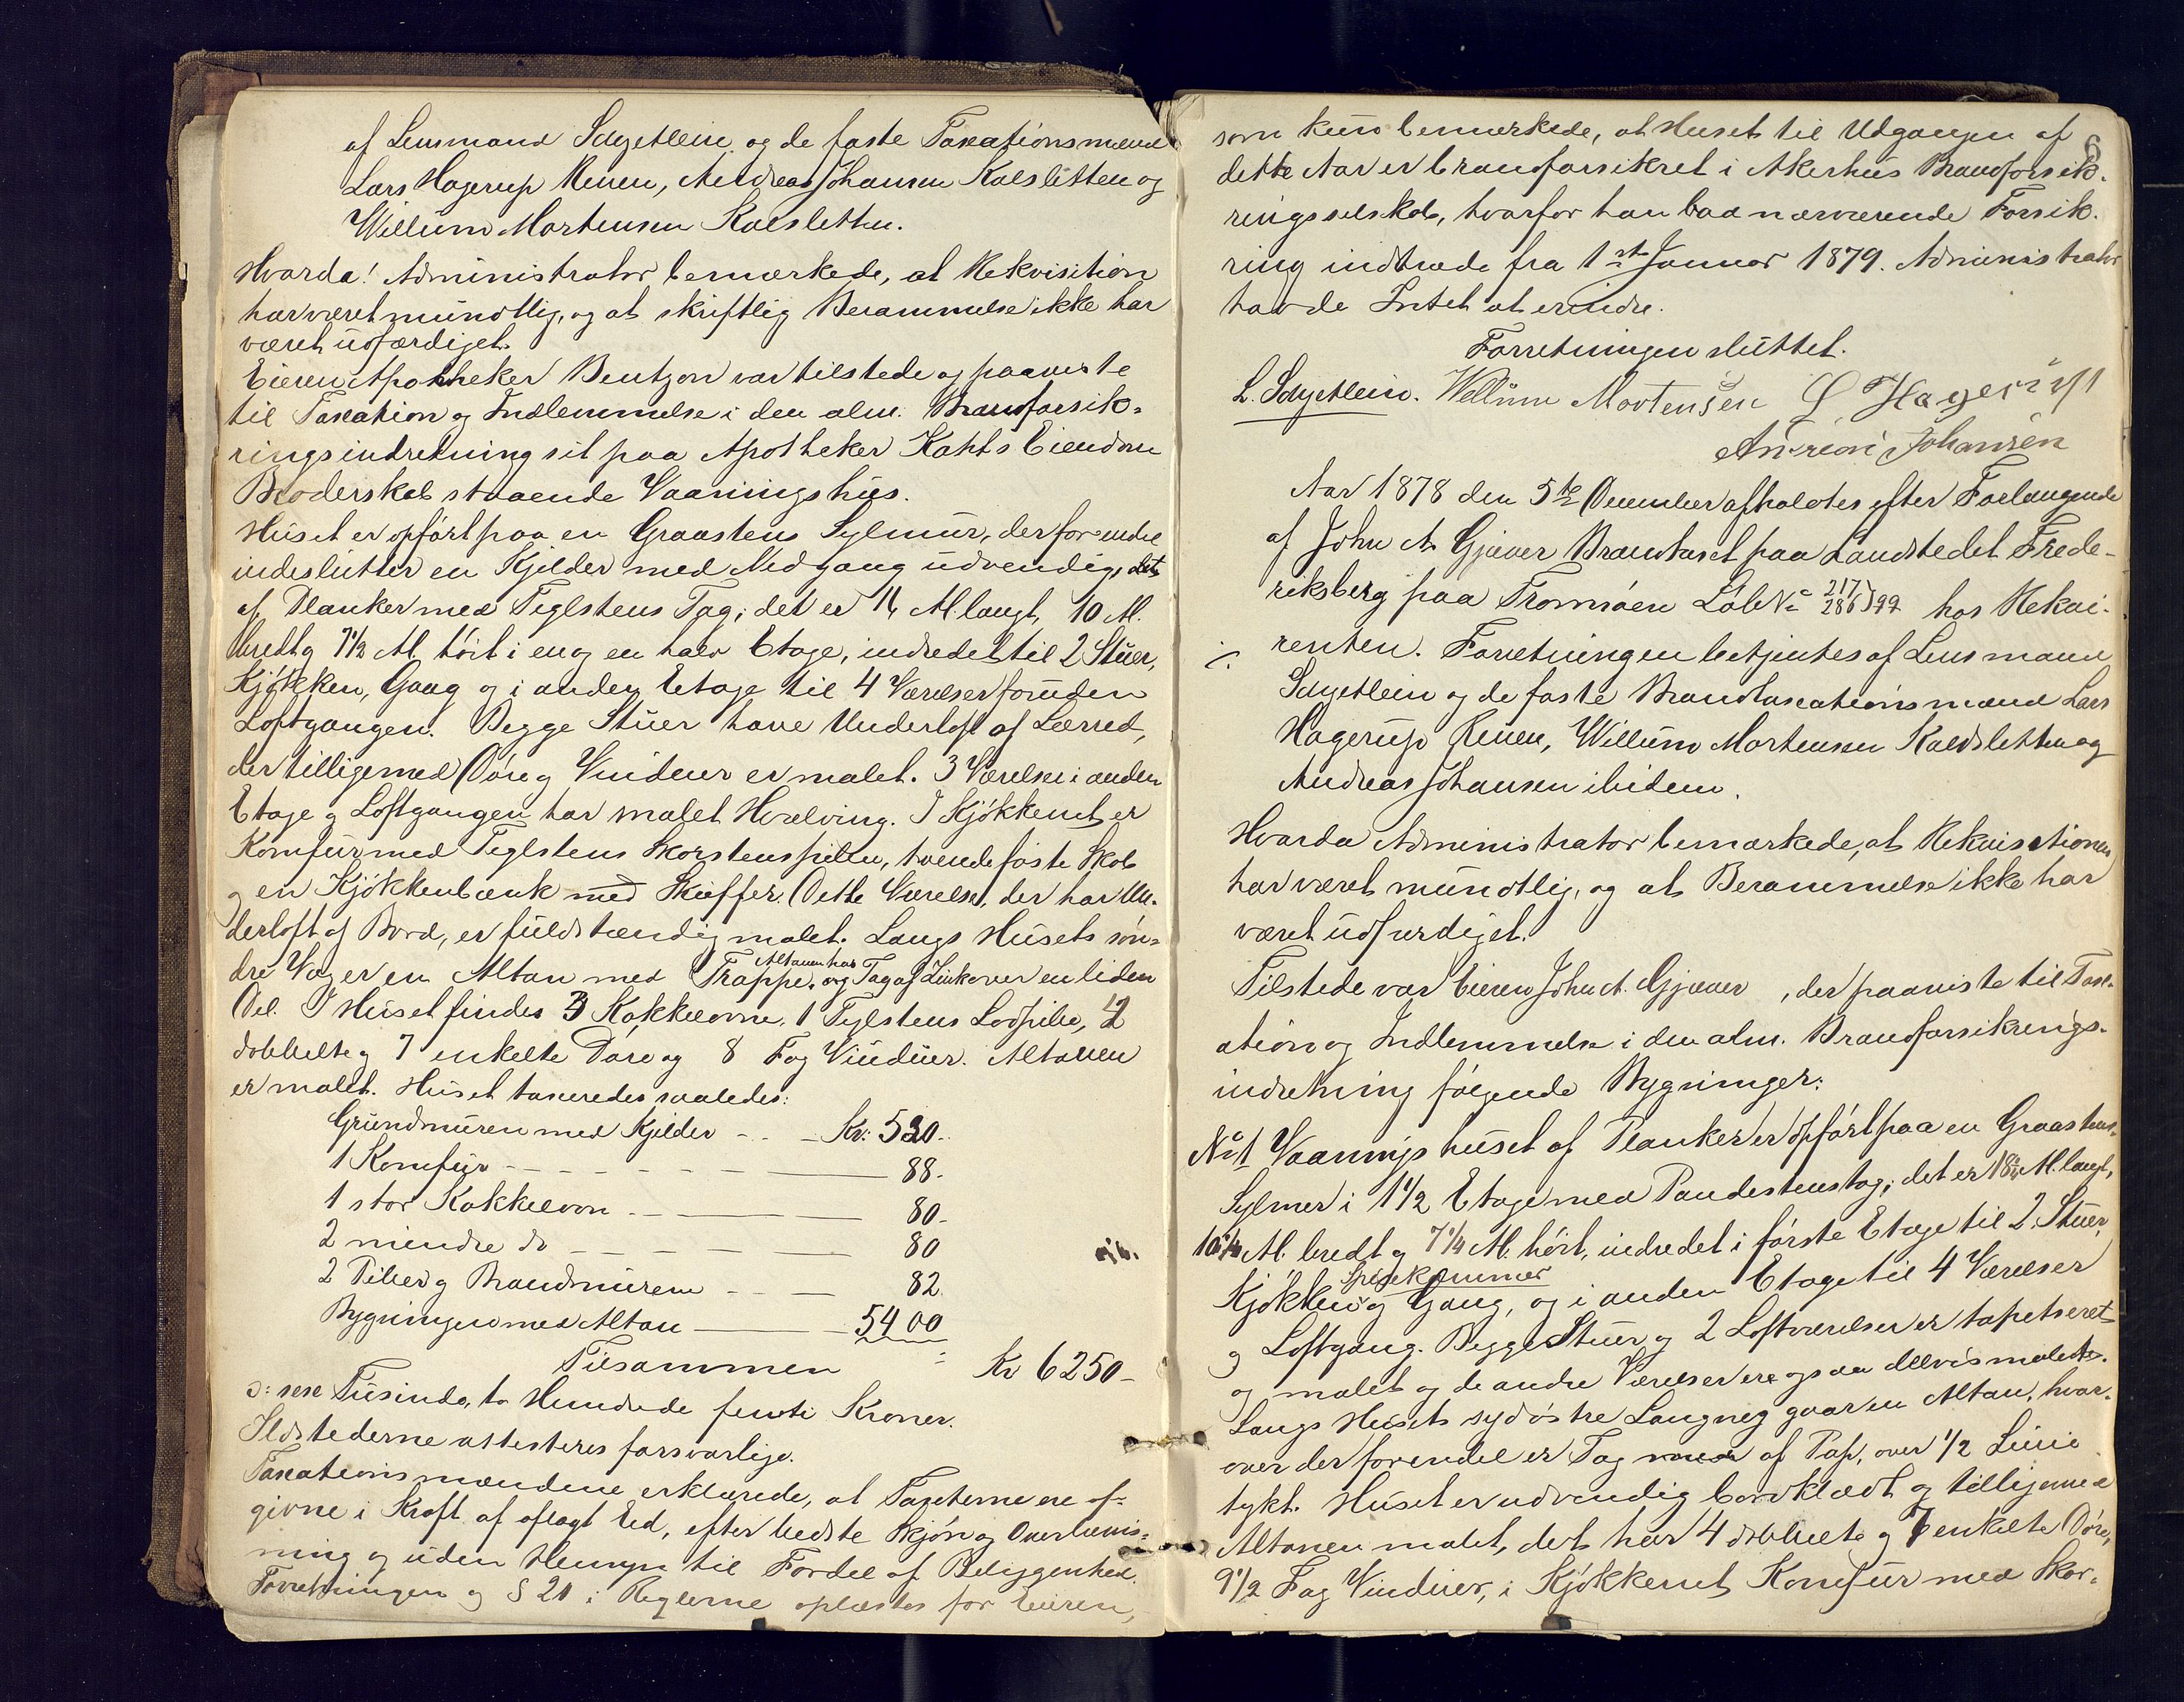 af Lensmand Sagetlein og de faste Taxationsmænd
Lars Hagerup Renen, Andreas Johansen Kalsletten og
Willum Mortensen Kalsletten.
Hvorda! Administrator bemærkede, at Rekvisition
har været mundtlig, og at skriftlig Berammelse ikke har
været udfærdiget.
Eieren Apotheker Bentzon var tilstede og paaviste
til Taxation og Indlemmelse i den alm. Brandforsik-
ringsindretning sit paa Apotheker Kahts Eiendom
Broderskab staaende Vaaningshus.
Huset er opført paa en Graastens Sylmur, der forendel
indeslutter en Kjelder med Nedgang udvendig, det
af Planker med Teglstens Tag; det er 14 M. langt, 10 M.
bredt og 7 1/2 M. høit i en og en halv Etage, indredet til 2 Stuer,
Kjøkken, Gang og i anden Etage til 4 Værelser foruden
Loftgangen. Begge Stuer have Underloft af Lærred,
der tilligemed Døre og Vinduer er malet. 3 Værelser i anden
Etage og Loftgangen har malet Hvælving. I Kjøkkenet er
Komfur med Teglstens Skorstenspibe, tvende faste Skab
og en Kjøkkenbænk med Skuffer. Dette Værelse, der har Un-
derloft af Bord, er fuldstændig malet. Langs Husets søn-
dre Væg er en Altan med Trappe, Altanen har og Tag af Zink over en liden
Del. I Huset findes 3 Kakkelovne, 1 Teglstens Lodpibe, 2
dobbelte og 7 enkelte Døre og 8 Fag Vinduer. Altanen
er malet. Huset taxeredes saaledes:
Grundmuren med Kjelder - - - Kr: 520.
1 Komfur - - - 88.
1 stor Kakkelovn - - - 80.
2 mindre do - - - 80
2 Piber og Brandmurene - - - 82.
Bygningen med Altan - - - 5400
Tilsammen Kr 6250 -
ɔ: sex Tusinde, to Hundrede femti Kroner.
Ildstederne attesteres forsvarlige.
Taxationsmændene erklærede, at Taxterne ere af-
givne i Kraft af aflagt Ed, efter bedste Skjøn og Overbevis-
ning og uden Hensyn til Fordel af Beliggenhed.
Forretningen og § 20 i Reglerne oplæstes for Eieren,
6
som kun bemærkede, at Huset til Udgangen af
dette Aar er brandforsikret i Akerhus Brandforsik-
ringsselskab, hvorfor han bad nærværende Forsik-
ring indtræde fra 1st Januar 1879. Administrator
havde Intet at erindre.
Forretningen sluttet.
L. Sagetlein. Wellum Mortensen L Hagerup
Andreas Johansen
Aar 1878 den 5te December afholdtes efter Forlangende
af John A. Gjæver Brandtaxt paa Landstedet Frede-
riksberg paa Tromsøen Løb No 217/286 99 hos Rekvi-
renten. Forretningen betjentes af Lensmand
Sagetlein og de faste Brandtaxationsmænd Lars
Hagerup Renen, Willum Mortensen Kaldsletten og
Andreas Johansen ibidem.
Hvorda Administrator bemærkede, at Rekvisitionen
har været mundtlig, og at Berammelse ikke har
været udfærdiget.
Tilstede var Eieren John A. Gjæver, der paaviste til Tax-
ation og Indlemmelse i den alm. Brandforsikrings-
indretning følgende Bygninger:
No 1 Vaaningshuset af Planker er opført paa en Graastens
Sylmur i 1 1/2 Etage med Pandestenstag; det er 18 M. langt,
10 1/4 M. bredt og 7 1/4 M. høit, indredet i første Etage til 2 Stuer,
Kjøkken, Spisekammer og Gang, og i anden Etage til 4 Værelser
og Loftgang. Begge Stuer og 2 Loftværelser er tapetseret
og malet og de andre Værelser ere ogsaa delvis malede.
Langs Husets sydøstre Langvæg gaar en Altan, hvor-
over der forendel er Tag af Pap, over 1/2 Linie
tykt. Huset er udvendig bordklædt og tilligemed
Altanen malet, det har 4 dobbelte og 7 enkelte Døre,
9 1/2 Fag Vinduer, i Kjøkkenet Komfur med Skor-